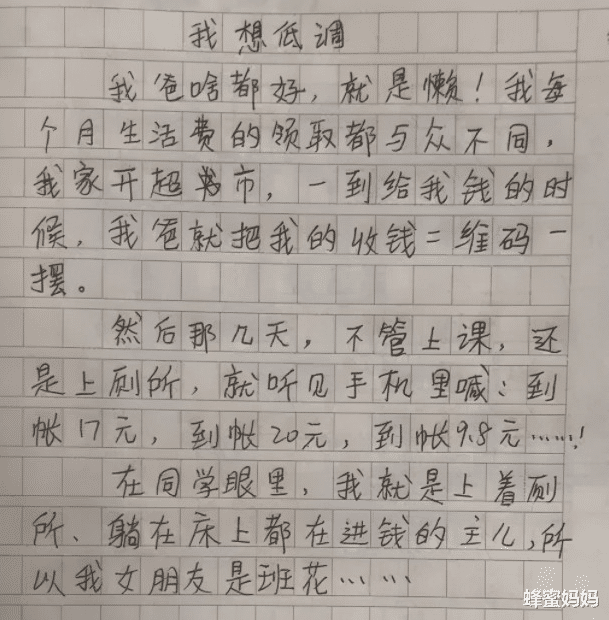 我想低调
我爸啥都好,就是懒!我每
个月生活费的领取都与众不同,
我家开超市,一到给我钱的时
候,我爸就把我的收钱二维码一
摆。
然后那几天,不管上课,还
是上厕所,就听见手机里喊:到
帐17元,到帐20元,到帐9.8元……!
在同学眼里,我就是上着厕
所、躺在床上都在进钱的主儿,所
以我女朋友是班花……
蜂蜜妈妈